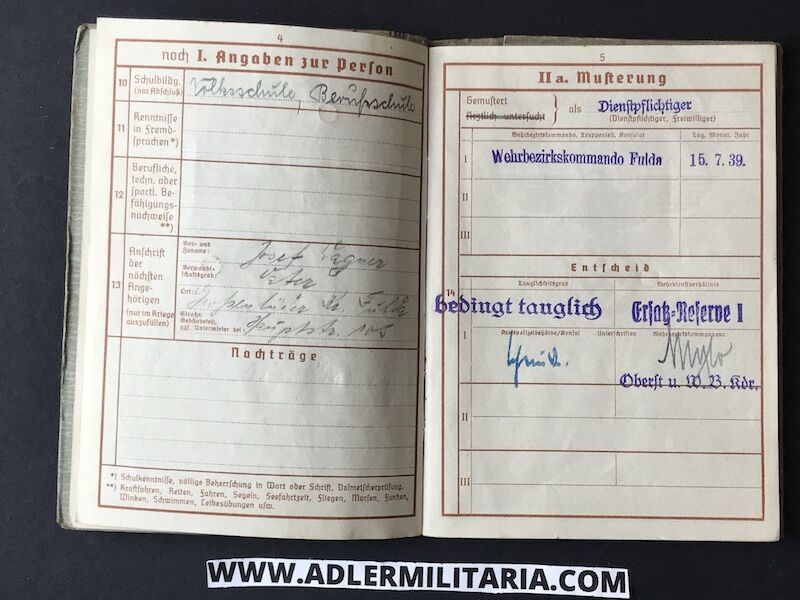 4
noch I. Angaben zur Person
10 Schulbildg. (nur Abschluß)
Volksschule, Berufsschule
11 Kenntnisse in Fremd-
sprachen *)
12 Berufliche,
techn. oder
sportl. Be-
fähigungs-
nachweise
**)
13 Anschrift
der
nächsten
Ange-
hörigen
(nur im Kriege
auszufüllen)
Vor- und
Zuname:
Josef Wagner
Verwandt-
schaftsgrad:
Vater
Ort:
Großenlüder Kr. Fulda
Straße,
Gebäudeteil,
ggf. Untermieter bei
Hauptstr. 105
Nachträge
*) Schulkenntnisse, völlige Beherrschung in Wort oder Schrift, Dolmetscherprüfung.
**) Kraftfahren, Reiten, Fahren, Segeln, Seefahrtzeit, Fliegen, Morsen, Funken,
Winken, Schwimmen, Leibesübungen usw.
5
II a. Musterung
Gemustert
Ärztlich untersucht
als Dienstpflichtiger
(Dienstpflichtiger, Freiwilliger)
Wehrbezirkskommando, Truppenteil, Konsulat
Tag, Monat, Jahr
I Wehrbezirkskommando Fulda 15. 7. 39.
II
III
Entscheid
Tauglichkeitsgrad
Wehrdienstverhältnis
14
bedingt tauglich
Ersatz-Reserve I
I
Kreispolizeibehörde/Konsul
Unterschriften
Wehrbezirkskommandeur
Oberst u. W. B. Kdr.
II
III
WWW.ADLERMILITARIA.COM